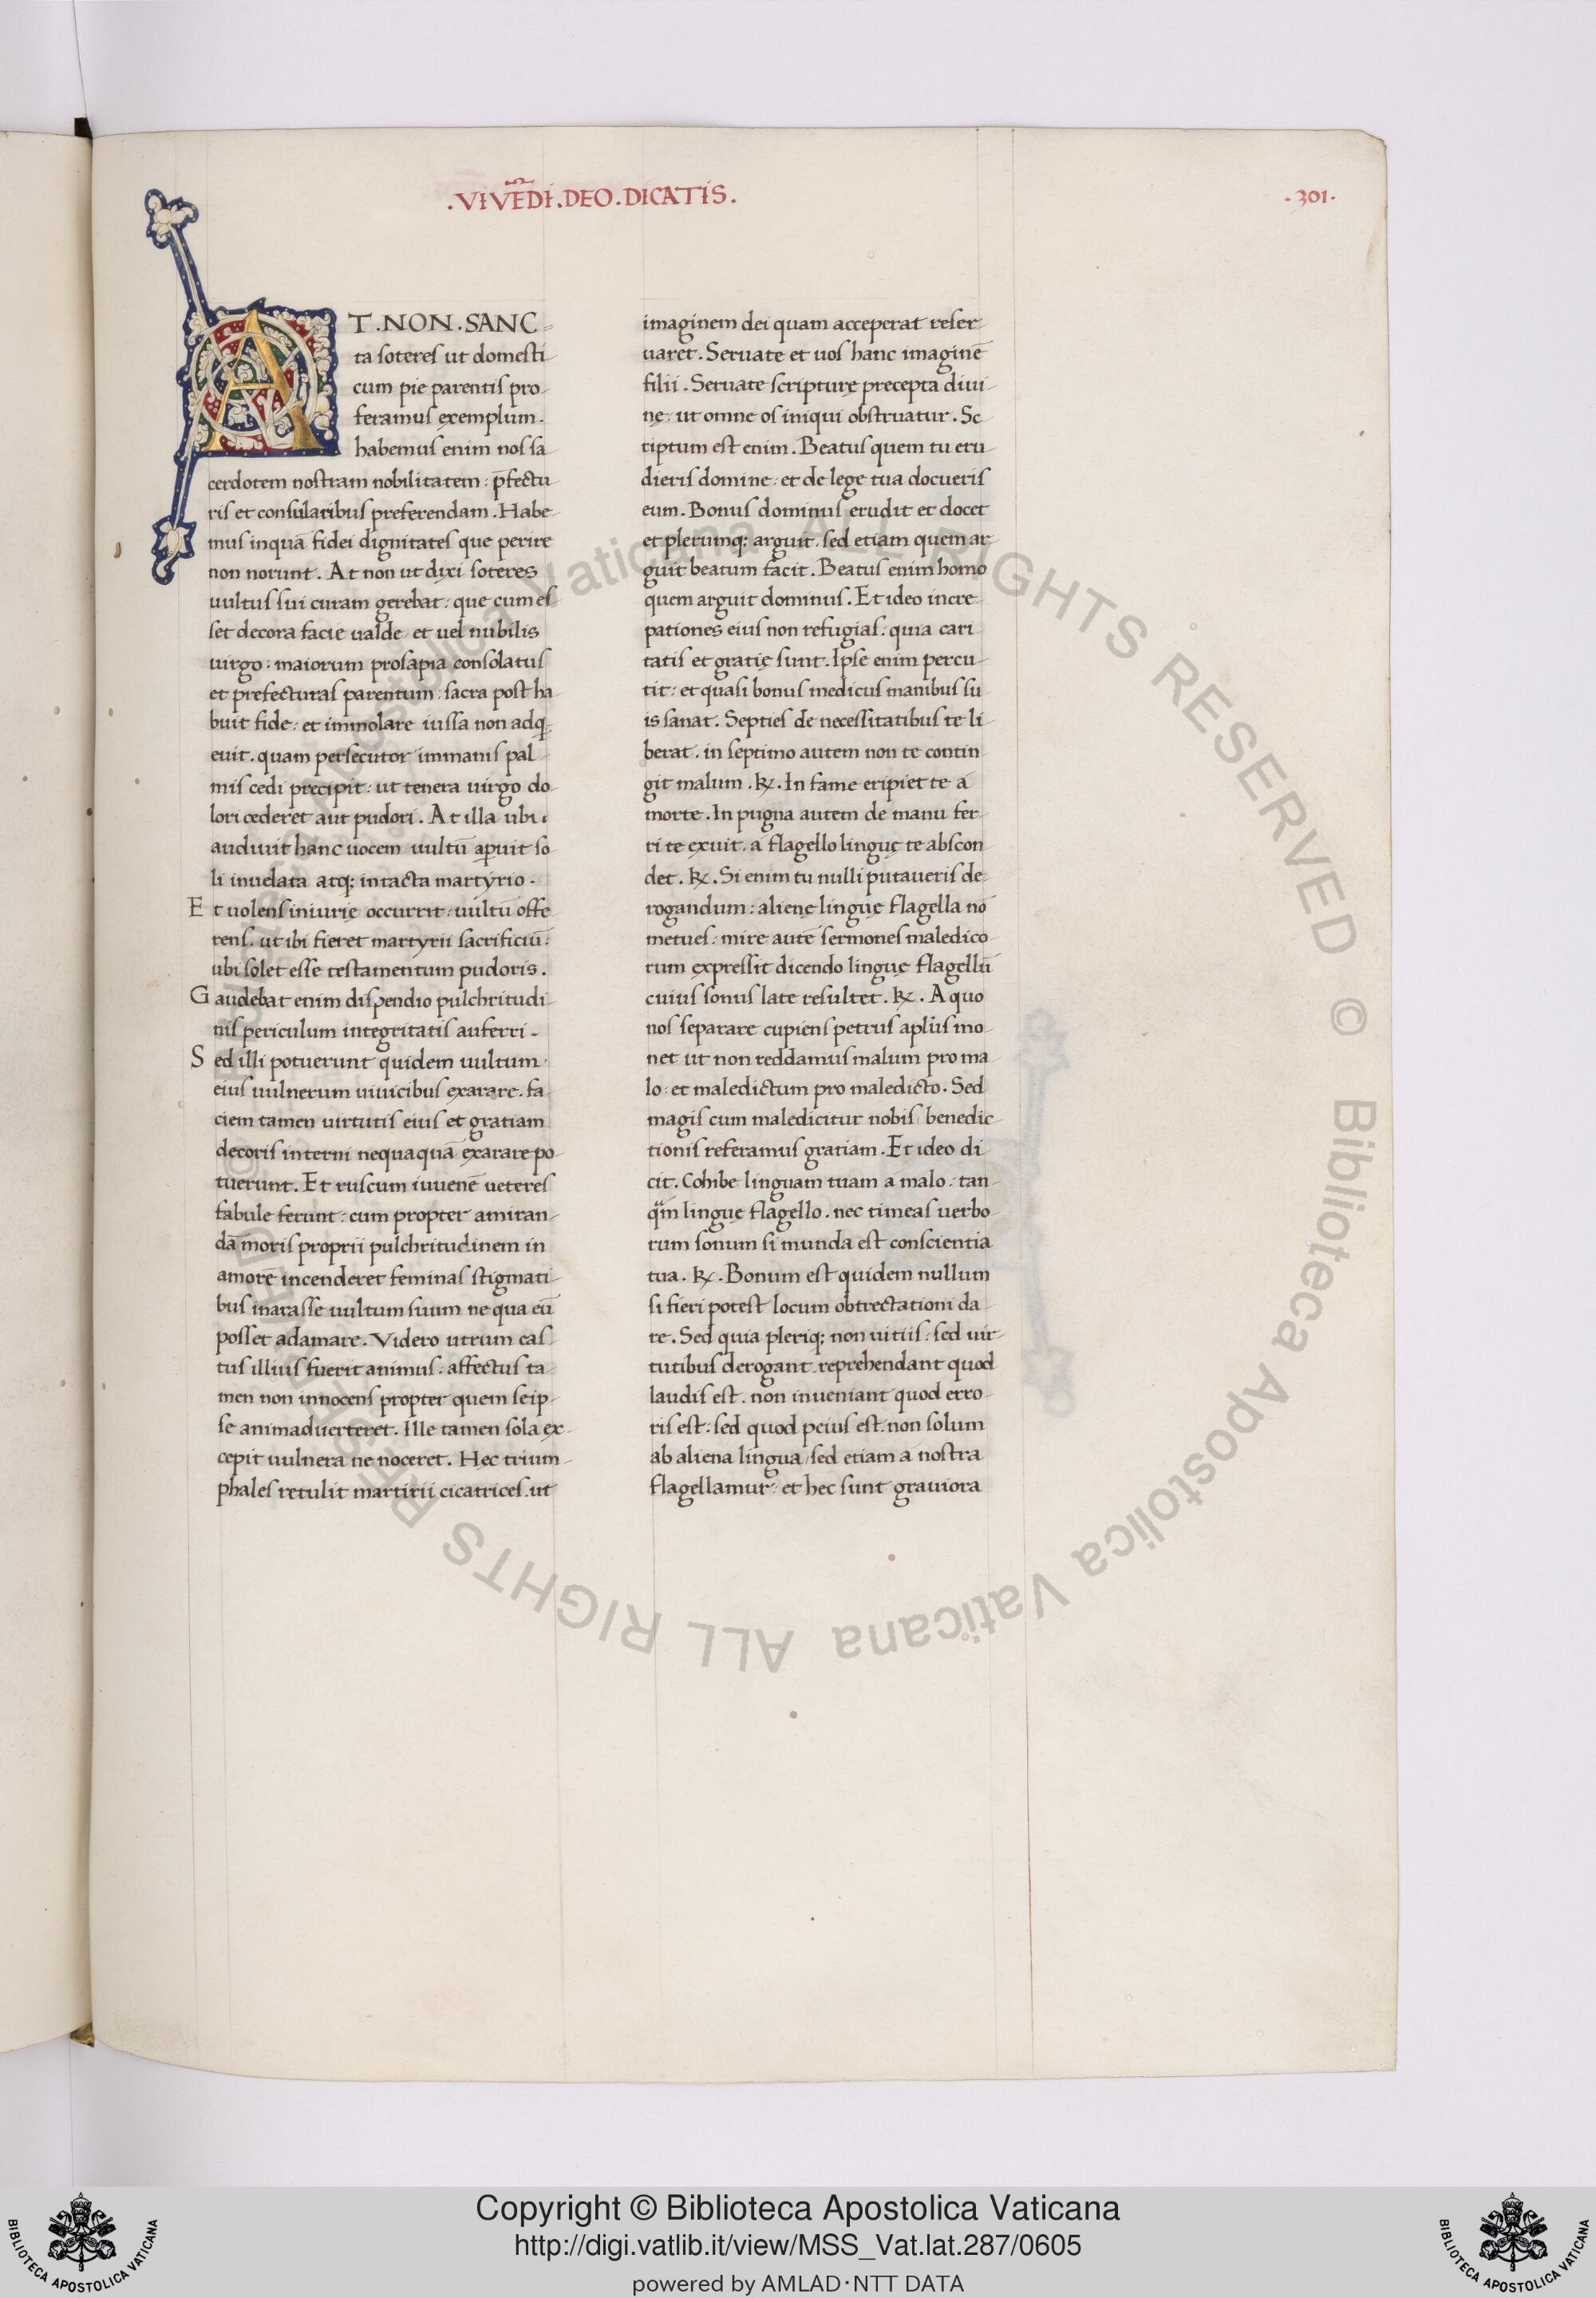 .VIVĒDI.DEO.DICATIS.
.301.
AT.NON.SANC=
ta soteres ut domesti-
cum pie parentis pro-
feramus exemplum.
habemus enim nos sa-
cerdotem nostram nobilitatem: p̄fectu-
ris et consularibus preferendam. Habe-
mus inquā fidei dignitates que perire
non norunt. At non ut dixi soteres
uultus sui curam gerebat: que cum es-
set decora facie ualde et uel nubilis
uirgo: maiorum prosapia consolatus
et prefecturas parentum: sacra post ha-
buit fide: et immolare iussa non adq-
euit. quam persecutor immanis pal-
mis cedi precipit: ut tenera uirgo do-
lori cederet aut pudori. At illa ubi
audiuit hanc uocem uultū aperuit so-
li inuelata atq; intacta martyrio.
Et uolens iniurię occurrit: uultū offe-
rens. ut ibi fieret martyrii sacrificiū:
ubi solet esse testamentum pudoris.
Gaudebat enim dispendio pulchritudi-
nis periculum integritatis auferri.
Sed illi potuerunt quidem uultum
eius uulnerum uiuicibus exarare. fa-
ciem tamen uirtutis eius et gratiam
decoris interni nequaquā exarare po-
tuerunt. Et ruscum iuuenē ueteres
fabule ferunt: cum propter amiran-
dā moris proprii pulchritudinem in
amorē incenderet feminas stigmati-
bus inarasse uultum suum ne qua eū
posset adamare. Videro utrum cas-
tus illius fuerit animus: affectus ta-
men non innocens propter quem seip-
se animaduerteret. Ille tamen sola ex-
cepit uulnera ne noceret. Hęc trium-
phales retulit martirii cicatrices. ut
imaginem dei quam acceperat reser-
uaret. Seruate et uos hanc imaginē
filii. Seruate scripturę precepta diui-
nę: ut omne os iniqui obstruatur. Sc-
riptum est enim. Beatus quem tu eru-
dieris domine: et de lege tua docueris
eum. Bonus dominus erudit et docet
et plerumq; arguit, sed etiam quem ar-
guit beatum facit. Beatus enim homo
quem arguit dominus. Et ideo incre-
pationes eius non refugias: quia cari-
tatis et gratię sunt. Ipse enim percu-
tit: et quasi bonus medicus manibus su-
is sanat. Septies de necessitatibus te li-
berat. in septimo autem non te contin-
git malum. ℞. In fame eripiet te á
morte. In pugna autem de manu fer-
ri te exuit. á flagello linguę te abscon-
det. ℞. Si enim tu nulli putaueris de-
rogandum: alienę linguę flagella nō
metues: mire autē sermones maledico-
rum expressit dicendo linguę flagellū
cuius sonus late resultet. ℞. A quo
nos separare cupiens petrus aplūs mo-
net ut non reddamus malum pro ma-
lo: et maledictum pro maledicto. Sed
magis cum maledicitur nobis benedic-
tionis referamus gratiam. Et ideo di-
cit. Cohibe linguam tuam á malo: tan-
q̄m linguę flagello. nec timeas uerbo-
rum sonum si munda est conscientia
tua. ℞. Bonum est quidem nullum
si fieri potest locum obtrectationi da-
re. Sed quia pleriq; non uitiis: sed uir-
tutibus derogant. reprehendant quod
laudis est. non inueniant quod erro-
ris est: sed quod peius est. non solum
ab aliena lingua, sed etiam á nostra
flagellamur: et hec sunt grauiora
Copyright © Biblioteca Apostolica Vaticana
http://digi.vatlib.it/view/MSS_Vat.lat.287/0605
powered by AMLAD·NTT DATA
BIBLIOTECA APOSTOLICA VATICANA
BIBLIOTECA APOSTOLICA VATICANA